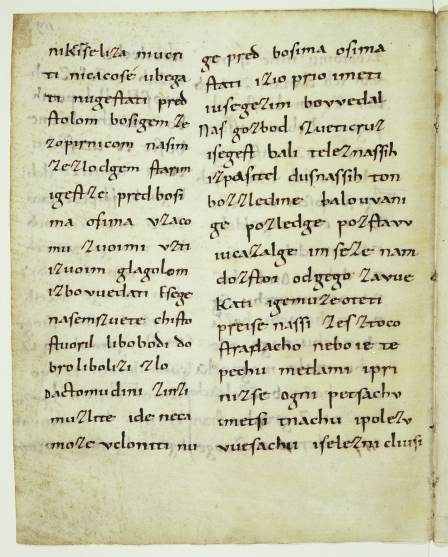 nikiſe liza niucri
ti nicacoſe ubega
ti nugeſtati pred
ſtolom boſigem ze
zopirnicom naſim
zezlodgem ſtarim
igeſtze pred boſi
ma oſima vzaco
mu zuoimi vzti
izuoim glagolom
izbovuedati Eſege
naſemzuete chiſto
ſtuoril libobodi do
bro liboliſi zlo
Dactomudini zinzi
muzlite ide neca
moze vcloniti nu
ge pred boſima oſima
ſtati izio prio imeti
iuſegezim bovvedal
Naſ gozbod zueticruz
iſegeſt bali teleznaſſih
izpaſitel duſnaſſih ton
bozzledine balouvani
ge pozledge poztavv
iucazalge im ſeze nam
doztoi odgego zavue
kati igemuzeoteti
preiſe naſſi zeſztoco
ſtradacho nebo ie te
pechu metlami ipri
nizſe ogni petſachv
imetſi tnachu ipolezv
vueſachu iſelezni cliuſi